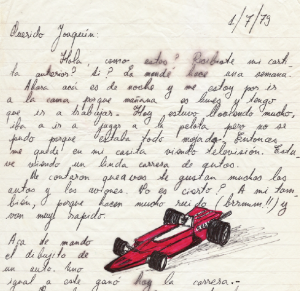 1/7/73
Querido Joaquín:
Hola, como estas? Recibiste mi cart
ta anterior? Si? La mandé hace una semana.
Ahora aquí es de noche y me estoy por ir
a la cama porque mañana es lunes y tengo
que ir a trabajar. Hoy estuvo lloviendo mucho,
iba a ir a jugar a la pelota pero no se
pudo porque estaba todo mojado. Entonces
me quedé en mi casita viendo televisión. Estu
ve viendo un linda carrera de autos.
Me contaron que a vos te gustan muchos los
autos y los aviones. Es cierto? A mi tam
bién, porque hacen mucho ruido (brrmmm!!) y
van muy rapido.
Aca te mando
el dibujito de
un auto. Uno
igual a este ganó hoy la carrera.-